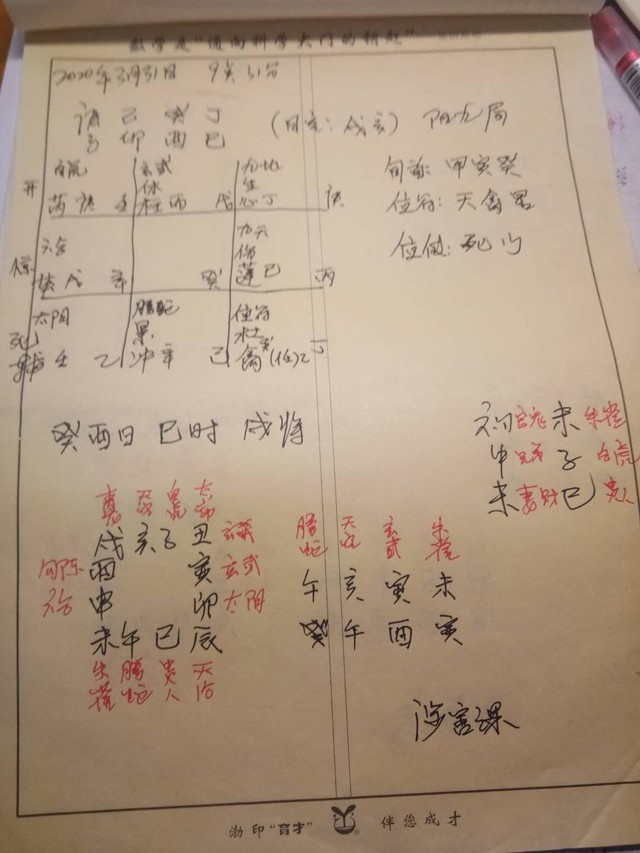 数学是“通向科学大门的钥匙”
2020年3月31日 9点31分
己 癸 丁
子 卯 酉 巳 (日空:戌亥) 阳九局
旬首:甲寅癸
值符:天禽星
值使:死门
白虎 玄武 九地
开 休 生
丙 戊 丁 庚
六合 九天
惊 伤
戊 癸 己 丙
太阴 腾蛇 值符
死 景 杜
壬 乙 冲 辛 己 禽 丁
癸酉日 巳时 戌将
初 官鬼 未 朱雀
中 兄弟 子 白虎
末 妻财 巳 贵人
戌 亥 子 丑
勾陈 酉 寅 玄武
六合 申 卯 太阴
未 午 巳 辰
朱雀 腾蛇 贵人 天后
腾蛇 玄武 朱雀
午 亥 寅 未
癸 午 酉 寅
涉害课
渤印“育才” 伴您成才